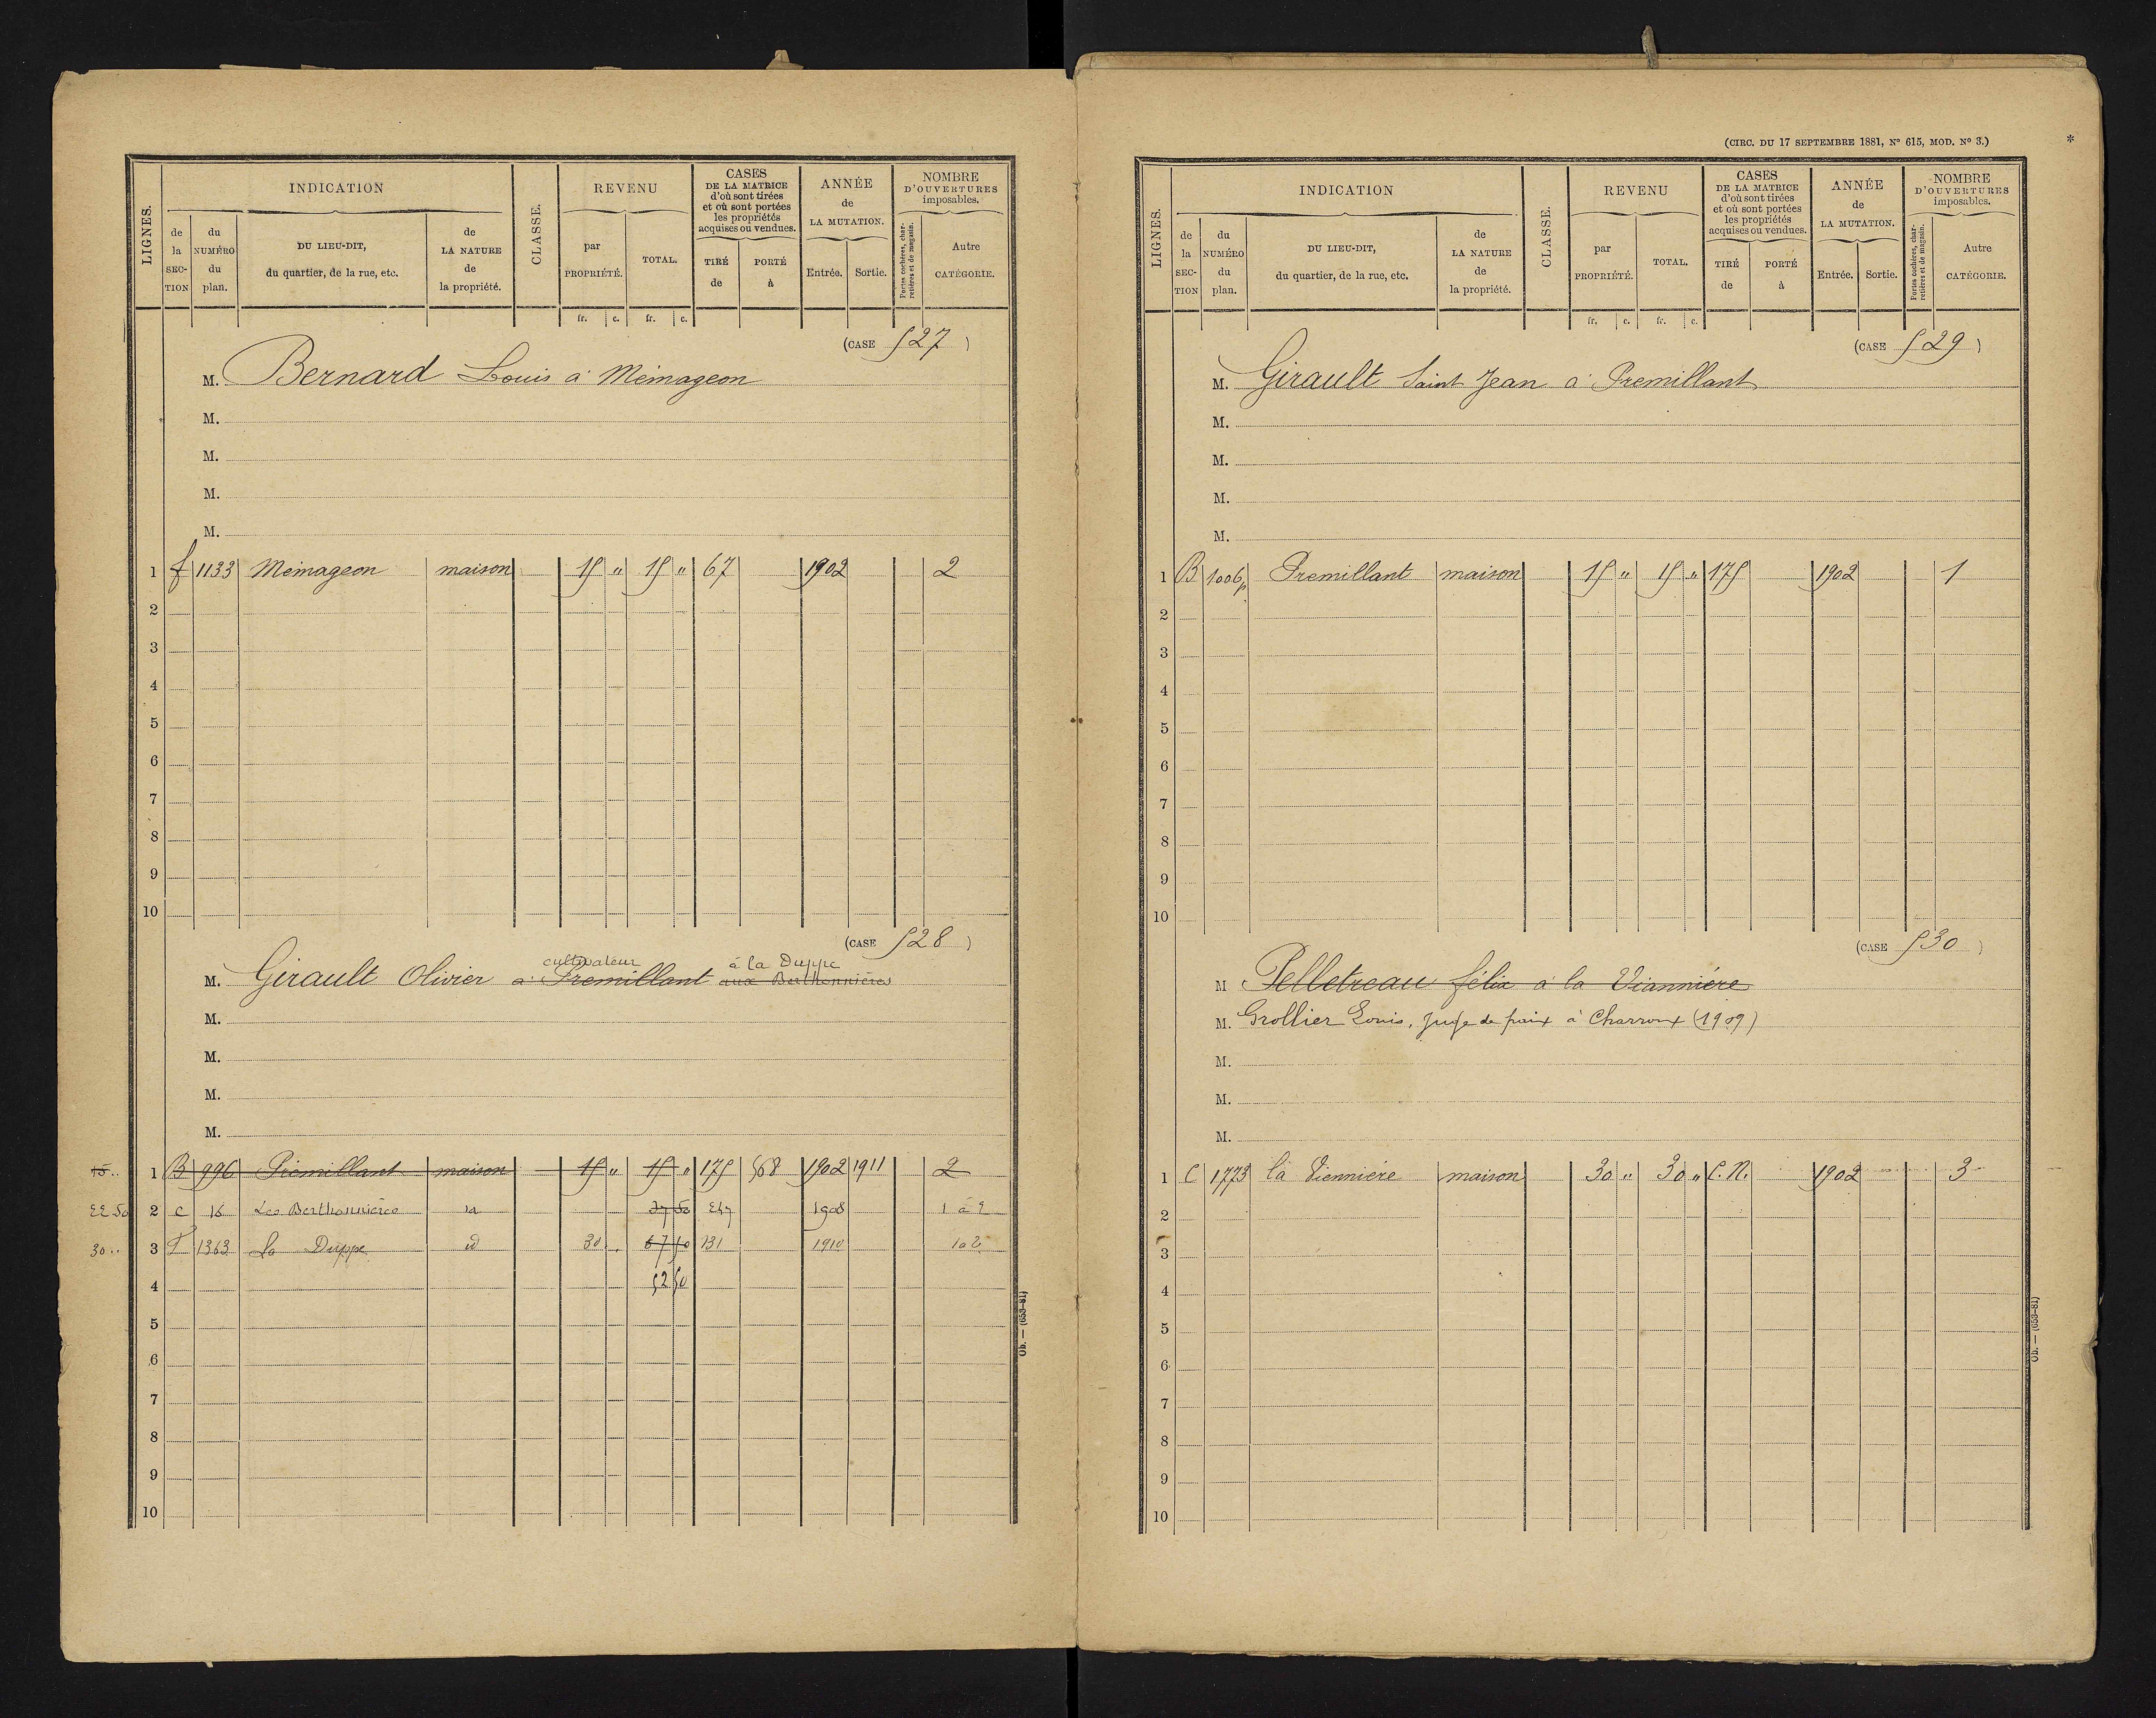 LIGNES.
INDICATION
de la SECTION
du NUMÉRO du plan.
DU LIEU-DIT, du quartier, de la rue, etc.
de LA NATURE de la propriété.
CLASSE.
REVENU
par PROPRIÉTÉ.
TOTAL.
CASES DE LA MATRICE d'où sont tirées et où sont portées les propriétés acquises ou vendues.
TIRÉ de
PORTÉ à
ANNÉE de LA MUTATION.
Entrée.
Sortie.
NOMBRE D'OUVERTURES imposables.
Portes cochères, charretières et de magasin.
Autre CATÉGORIE.
fr. c. fr. c.
(CASE 527)
M. Bernard Louis à Mémageon
M.
M.
M.
M.
1 f 1133 Mémageon maison 15 " 15 " 67 1902 2
2
3
4
5
6
7
8
9
10
(CASE 528)
cultivateur à la Duppe
M. Girault Olivier à Premillant aux Berthonnières
M.
M.
M.
M.
15.. 1 B 996 Prémillant maison 15 " 15 " 175 568 1902 1911 2
22 50 2 c 16 Les Berthonnières id 37 50 247 1908 1 à 2
30.. 3 F 1363 La Duppe id 30 . 67 50 131 1910 1 à 2
4 52 50
5
6
7
8
9
10
Ob. — (653-81)
(CIRC. DU 17 SEPTEMBRE 1881, N° 615, MOD. N° 3.)
*
LIGNES.
INDICATION
de la SECTION
du NUMÉRO du plan.
DU LIEU-DIT, du quartier, de la rue, etc.
de LA NATURE de la propriété.
CLASSE.
REVENU
par PROPRIÉTÉ.
TOTAL.
CASES DE LA MATRICE d'où sont tirées et où sont portées les propriétés acquises ou vendues.
TIRÉ de
PORTÉ à
ANNÉE de LA MUTATION.
Entrée.
Sortie.
NOMBRE D'OUVERTURES imposables.
Portes cochères, charretières et de magasin.
Autre CATÉGORIE.
fr. c. fr. c.
(CASE 529)
M. Girault Saint Jean à Premillant
M.
M.
M.
M.
1 B 1006p Premillant maison 15 " 15 " 175 1902 1
2
3
4
5
6
7
8
9
10
(CASE 530)
M Pelletreau félix à la Viannière
M. Grollier Louis, Juge de paix à Charroux (1909)
M.
M.
M.
1 C 1773 la Viennière maison 30 " 30 " C.N. 1902 3
2
3
4
5
6
7
8
9
10
Ob. — (653-81)